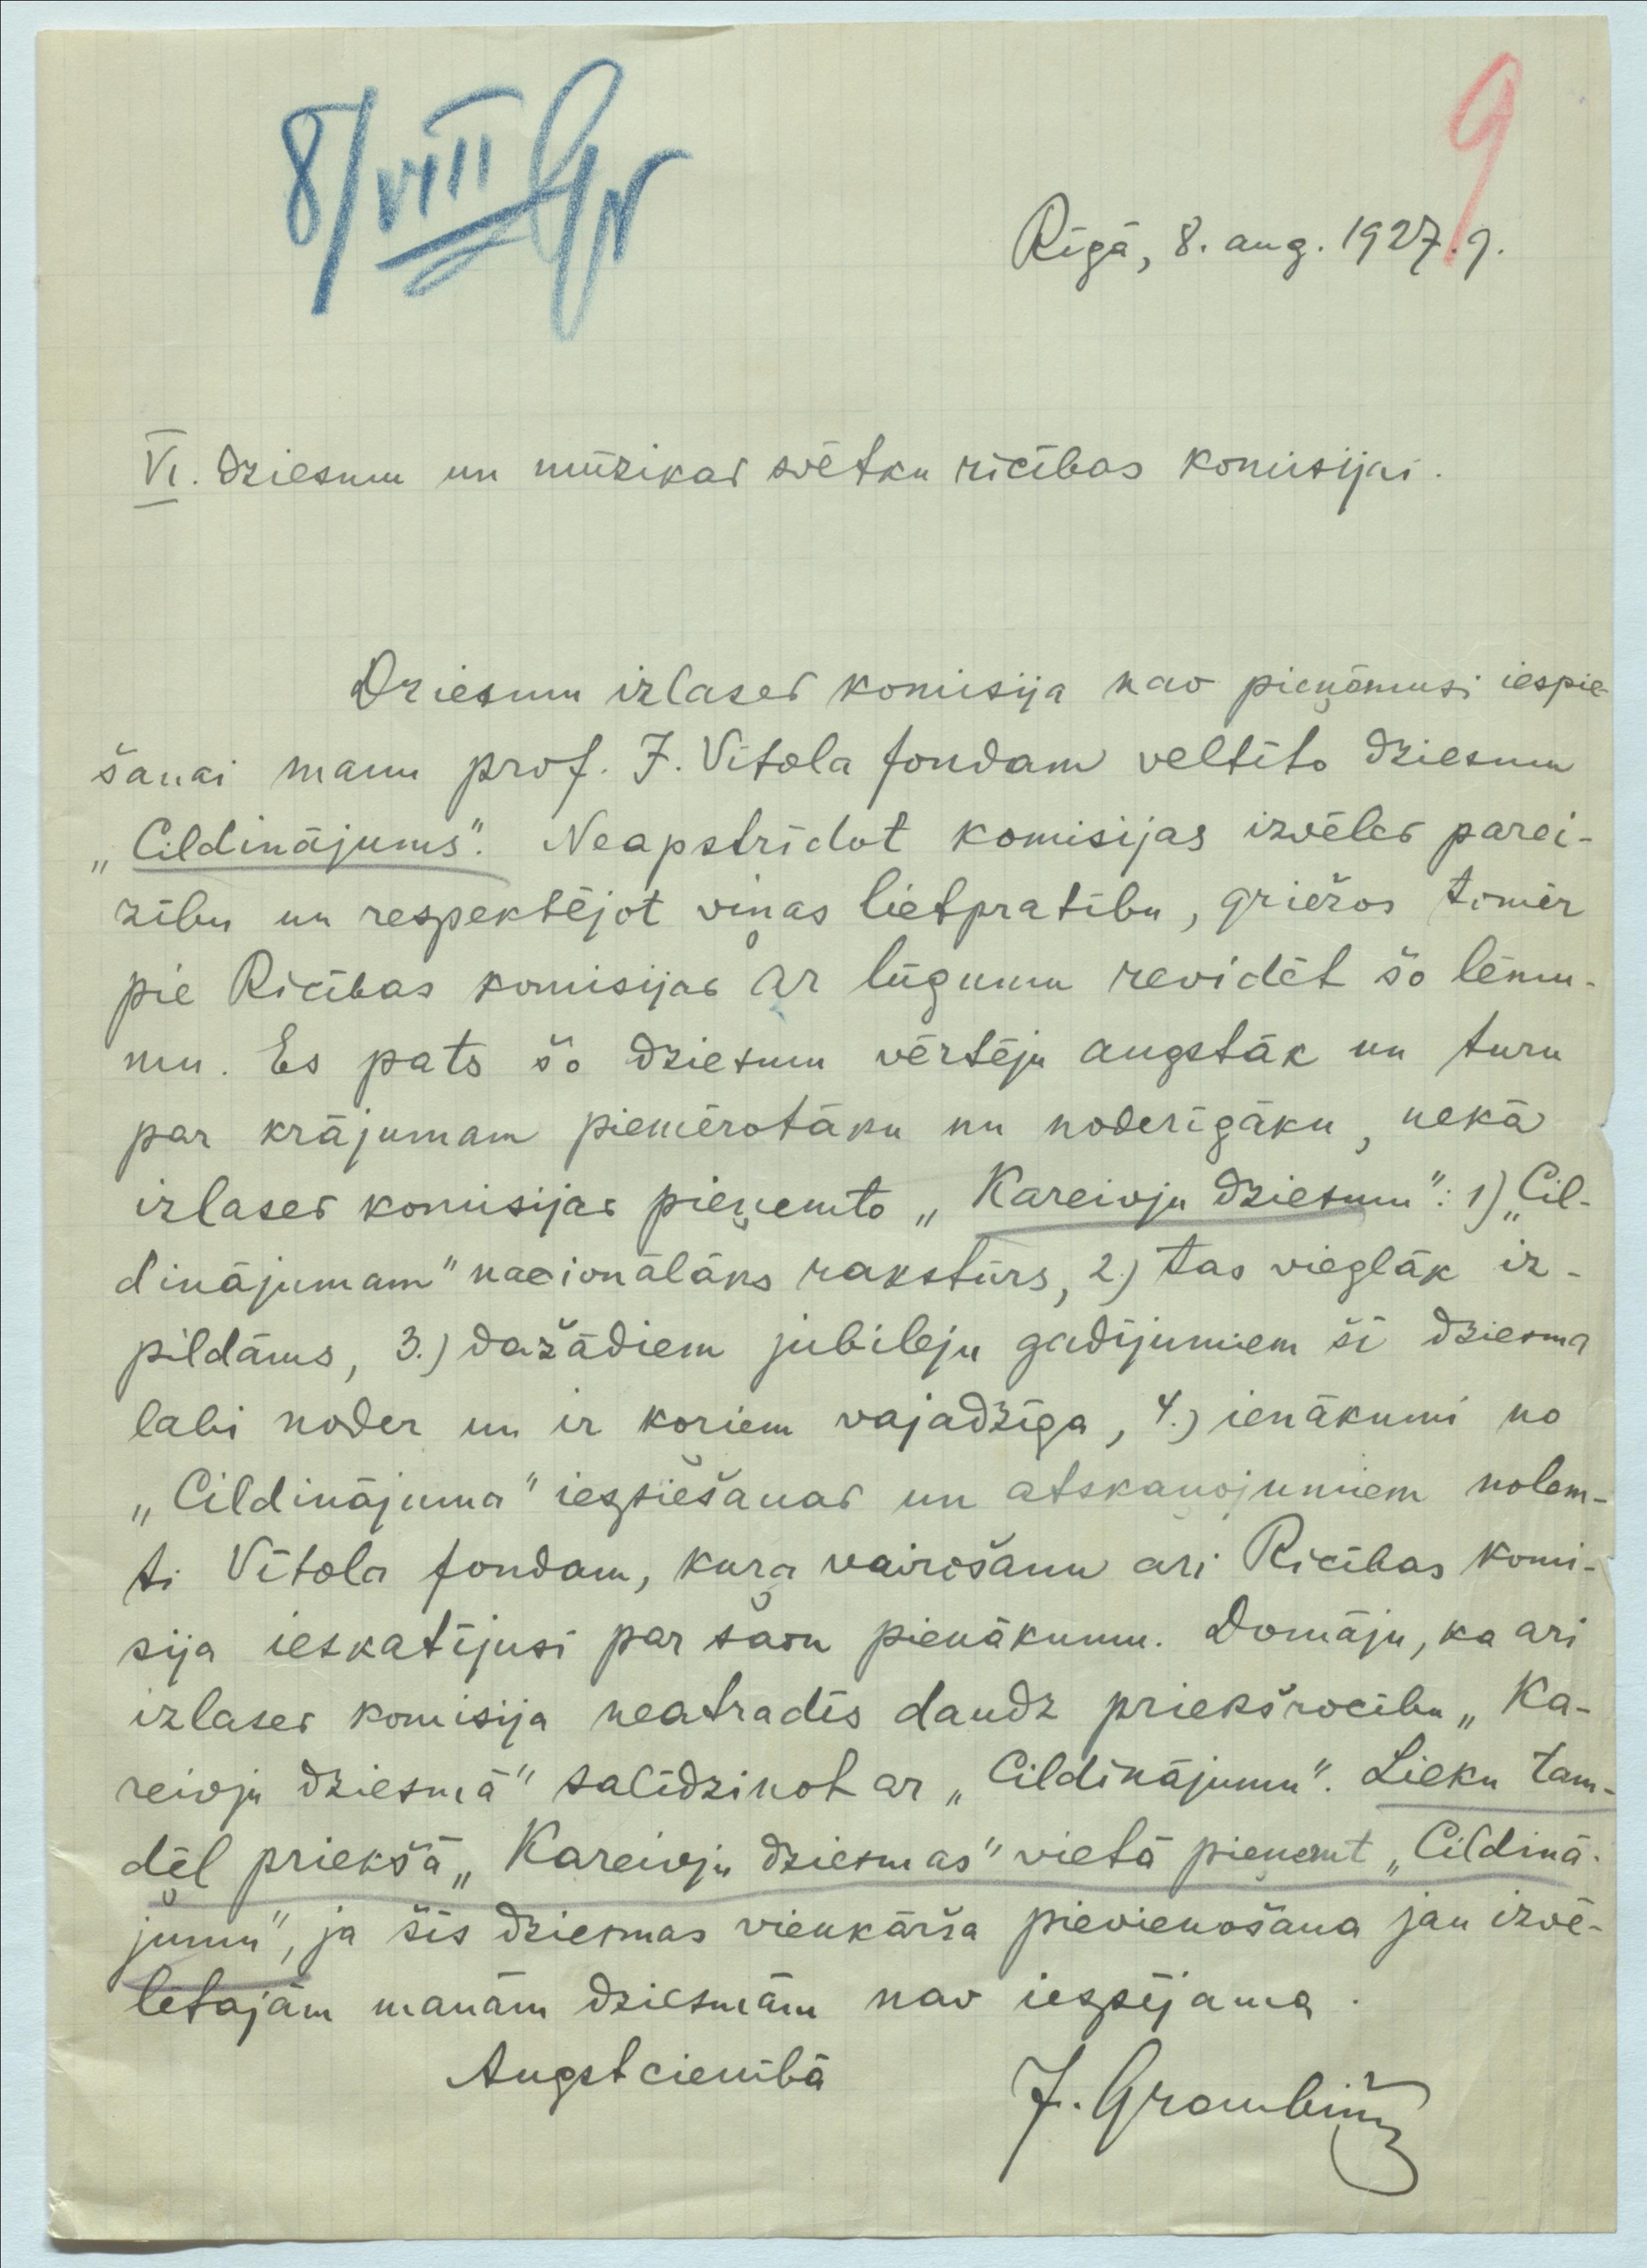 8/VIII Gr
9
Rīgā, 8. aug. 1927. g.
VI. Dziesmu un mūzikas svētku rīcības komisijai.
Dziesmu izlases komisija nav pieņēmusi iespie-
šanai manu prof. J. Vītola fondam veltīto dziesmu
„Cildinājums". Neapstrīdot komisijas izvēles parei-
zību un respektējot viņas lietpratību, griežos tomēr
pie Rīcības komisijas ar lūgumu revidēt šo lēmu-
mu. Es pats šo dziesmu vērtēju augstāk un turu
par krājumam piemērotāku un noderīgāku, nekā
izlases komisijas pieņemto „Kareivju dziesmu": 1) „Cil-
dinājumam" nacionālāks rakstūrs, 2.) tas vieglāk iz-
pildāms, 3.) dažādiem jubileju gadījumiem šī dziesma
labi noder un ir koriem vajadzīga, 4.) ienākumi no
„Cildinājuma" iespiešanas un atskaņojumiem nolem-
ti Vītola fondam, kuŗa vairošanu ari Rīcības komi-
sija ieskatījusi par savu pienākumu. Domāju, ka ari
izlases komisija neatradīs daudz priekšrocību „Ka-
reivju dziesmā" salīdzinot ar „Cildinājumu". Lieku tam-
dēļ priekšā „Kareivju dziesmas" vietā pieņemt „Cildinā-
jumu", ja šīs dziesmas vienkārša pievienošana jau izvē-
lētajām manām dziesmām nav iespējama.
Augstcienībā
J. Graubiņš